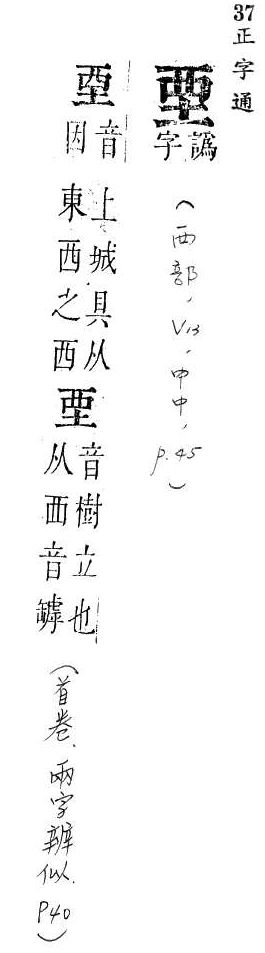 37正字通
譌字
(西部,V13,申中,p.45)
垔
音因
上城具从
東西之西
音樹立也
从襾音罅
(首卷.兩字辨似.P40)